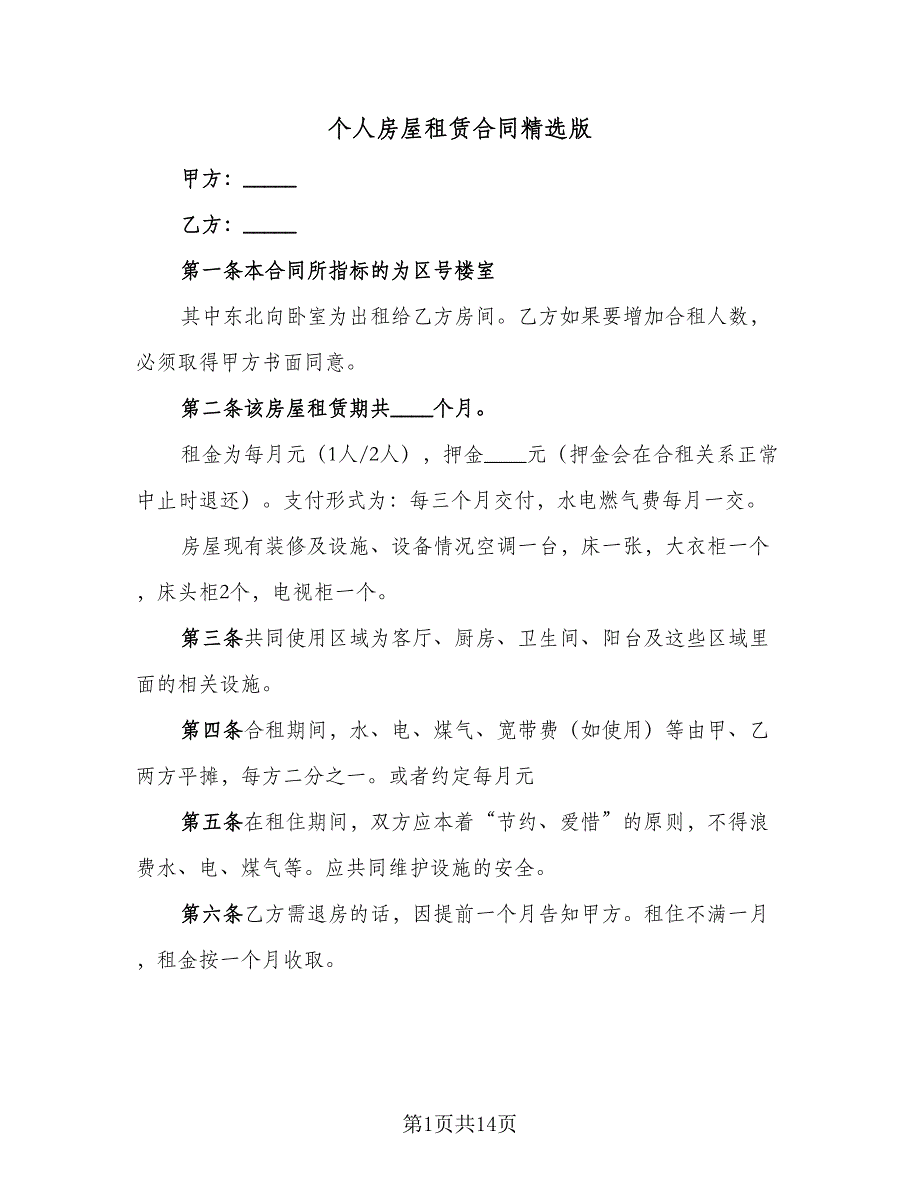 个人房屋租赁合同精选版
甲方：_____
乙方：_____
第一条本合同所指标的为区号楼室
其中东北向卧室为出租给乙方房间。乙方如果要增加合租人数，
必须取得甲方书面同意。
第二条该房屋租赁期共____个月。
租金为每月元（1人/2人），押金____元（押金会在合租关系正常
中止时退还）。支付形式为：每三个月交付，水电燃气费每月一交。
房屋现有装修及设施、设备情况空调一台，床一张，大衣柜一个
，床头柜2个，电视柜一个。
第三条共同使用区域为客厅、厨房、卫生间、阳台及这些区域里
面的相关设施。
第四条合租期间，水、电、煤气、宽带费（如使用）等由甲、乙
两方平摊，每方二分之一。或者约定每月元
第五条在租住期间，双方应本着“节约、爱惜”的原则，不得浪
费水、电、煤气等。应共同维护设施的安全。
第六条乙方需退房的话，因提前一个月告知甲方。租住不满一月
，租金按一个月收取。
第1页共14页